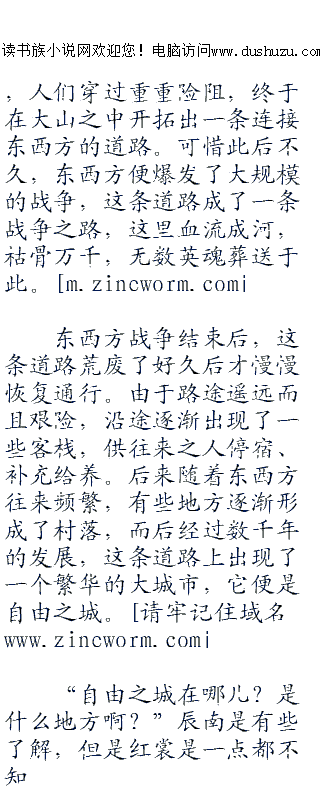 读书族小说网欢迎您！电脑访问www.dushuzu.com
，人们穿过重重险阻，终于
在大山之中开拓出一条连接
东西方的道路。可惜此后不
久，东西方便爆发了大规模
的战争，这条道路成了一条
战争之路，这里血流成河，
祜骨万千，无数英魂葬送于
此。[m.zincworm.com|
东西方战争结束后，这
条道路荒废了好久后才慢慢
恢复通行。由于路途遥远而
且艰险，沿途逐渐出现了一
些客栈，供往来之人停宿、
补充给养。后来随着东西方
往来频繁，有些地方逐渐形
成了村落，而后经过数千年
的发展，这条道路上出现了
一个繁华的大城市，它便是
自由之城。[请牢记住域名
www.zincworm.com|
“自由之城在哪儿？是
什么地方啊？”辰南是有些
了解，但是红裳是一点都不
知